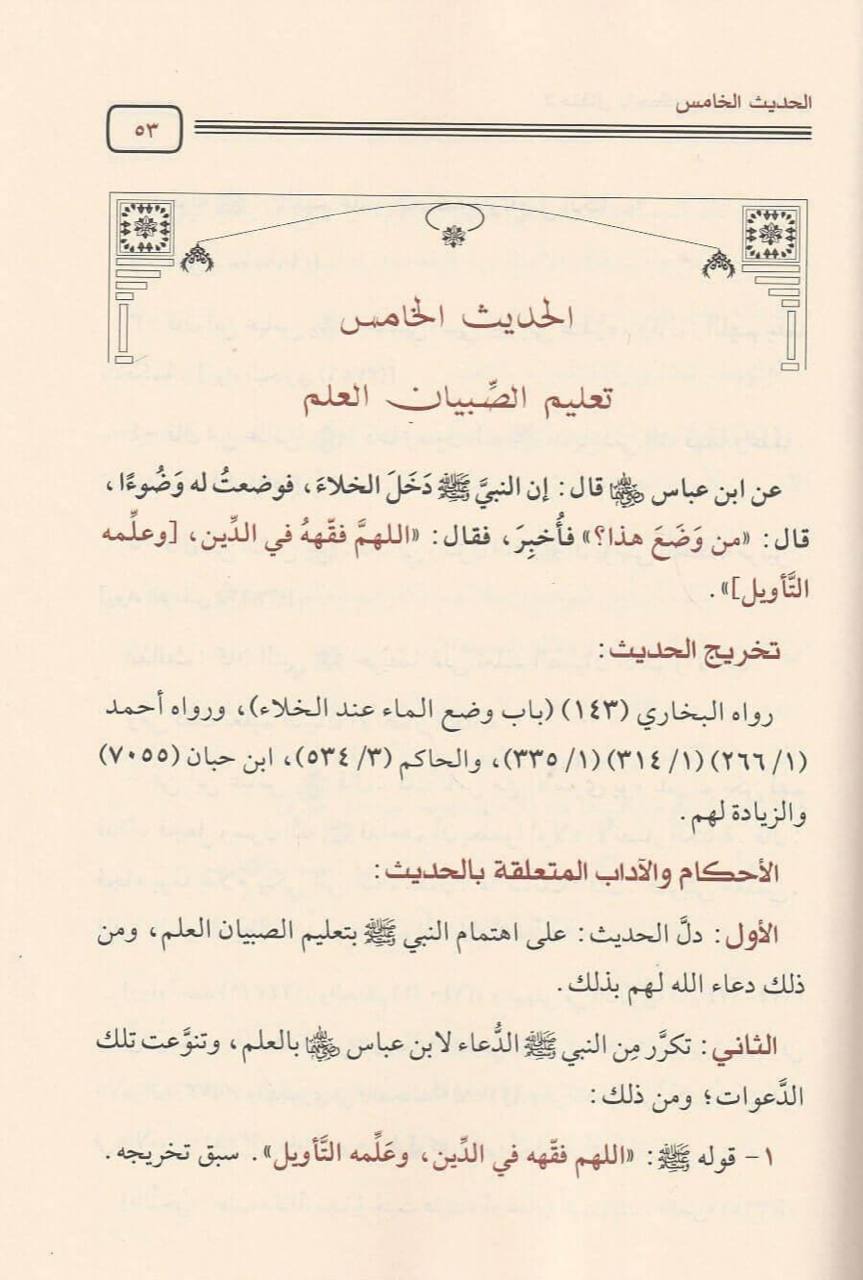 الحديث الخامس
٥٣
الحديث الخامس
تعليم الصِّبيان العلم
عن ابن عباس ﵄ قال: إن النبيَّ ﷺ دَخَلَ الخلاءَ، فوضعتُ له وَضُوءًا،
قال: «من وَضَعَ هذا؟» فأُخبِرَ، فقال: «اللهمَّ فقِّههُ في الدِّين، [وعلِّمه
التَّأويل]».
تخريج الحديث:
رواه البخاري (١٤٣) (باب وضع الماء عند الخلاء)، ورواه أحمد
(١/ ٢٦٦) (١/ ٣١٤) (١/ ٣٣٥)، والحاكم (٣/ ٥٣٤)، ابن حبان (٧٠٥٥)
والزيادة لهم.
الأحكام والآداب المتعلقة بالحديث:
الأول: دلَّ الحديث: على اهتمام النبي ﷺ بتعليم الصبيان العلم، ومن
ذلك دعاء الله لهم بذلك.
الثاني: تكرَّر مِن النبي ﷺ الدُّعاء لابن عباس ﵄ بالعلم، وتنوَّعت تلك
الدَّعوات؛ ومن ذلك:
١- قوله ﷺ: «اللهم فقِّهه في الدِّين، وعَلِّمه التَّأويل». سبق تخريجه.